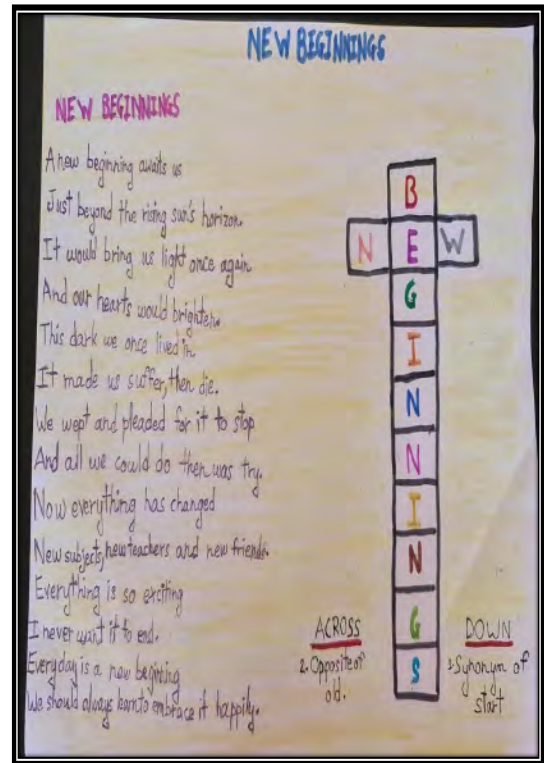 NEW BEGINNINGS
NEW BEGINNINGS
A new beginning awaits us
Just beyond the rising sun's horizon.
It would bring us light once again
And our hearts would brighten.
This dark we once lived in
It made us suffer, then die.
We wept and pleaded for it to stop
And all we could do then was try.
Now everything has changed
New subjects, new teachers and new friends.
Everything is so exciting
I never want it to end.
Everyday is a new begining
We should always learn to embrace it happily.
B
N E W
G
I
N
N
I
N
G
S
ACROSS
2. Opposite of
old.
DOWN
1. Synonym of
start